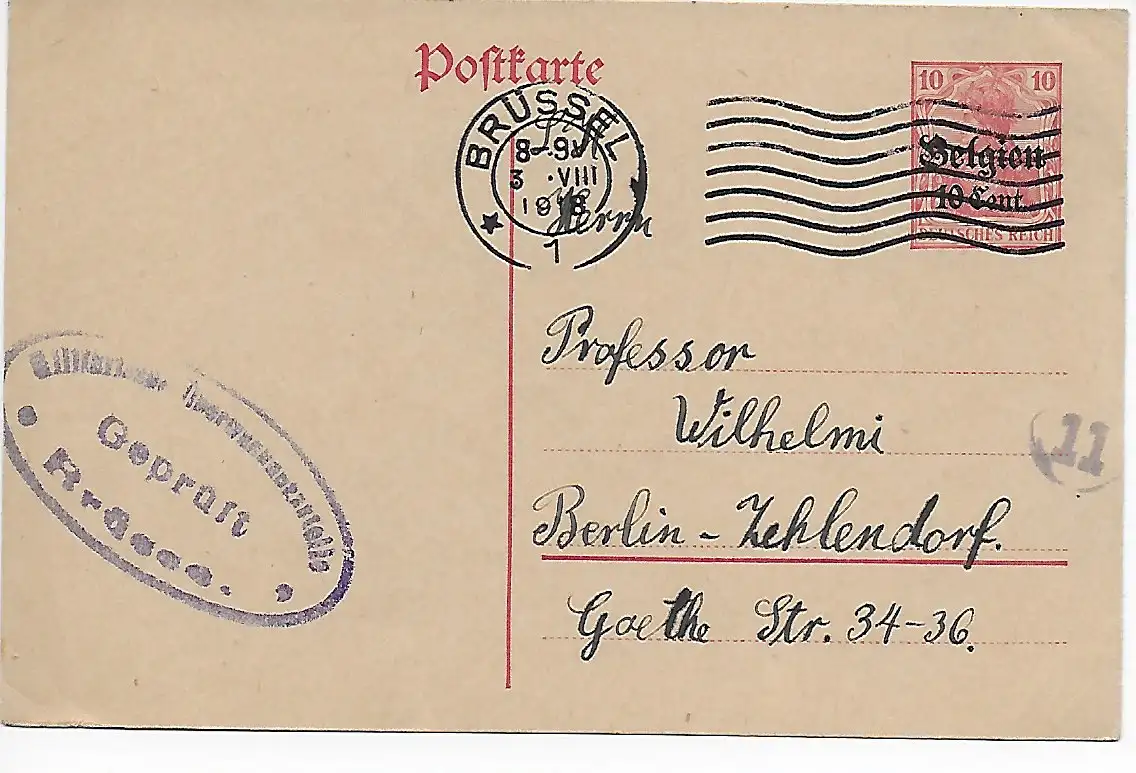 Postkarte
10 10
Belgien
10 Cent.
DEUTSCHES REICH
BRÜSSEL
3 .VIII
1918
1
Herrn
Professor
Wilhelmi
Berlin - Zehlendorf.
Goethe Str. 34-36.
Geprüft
11